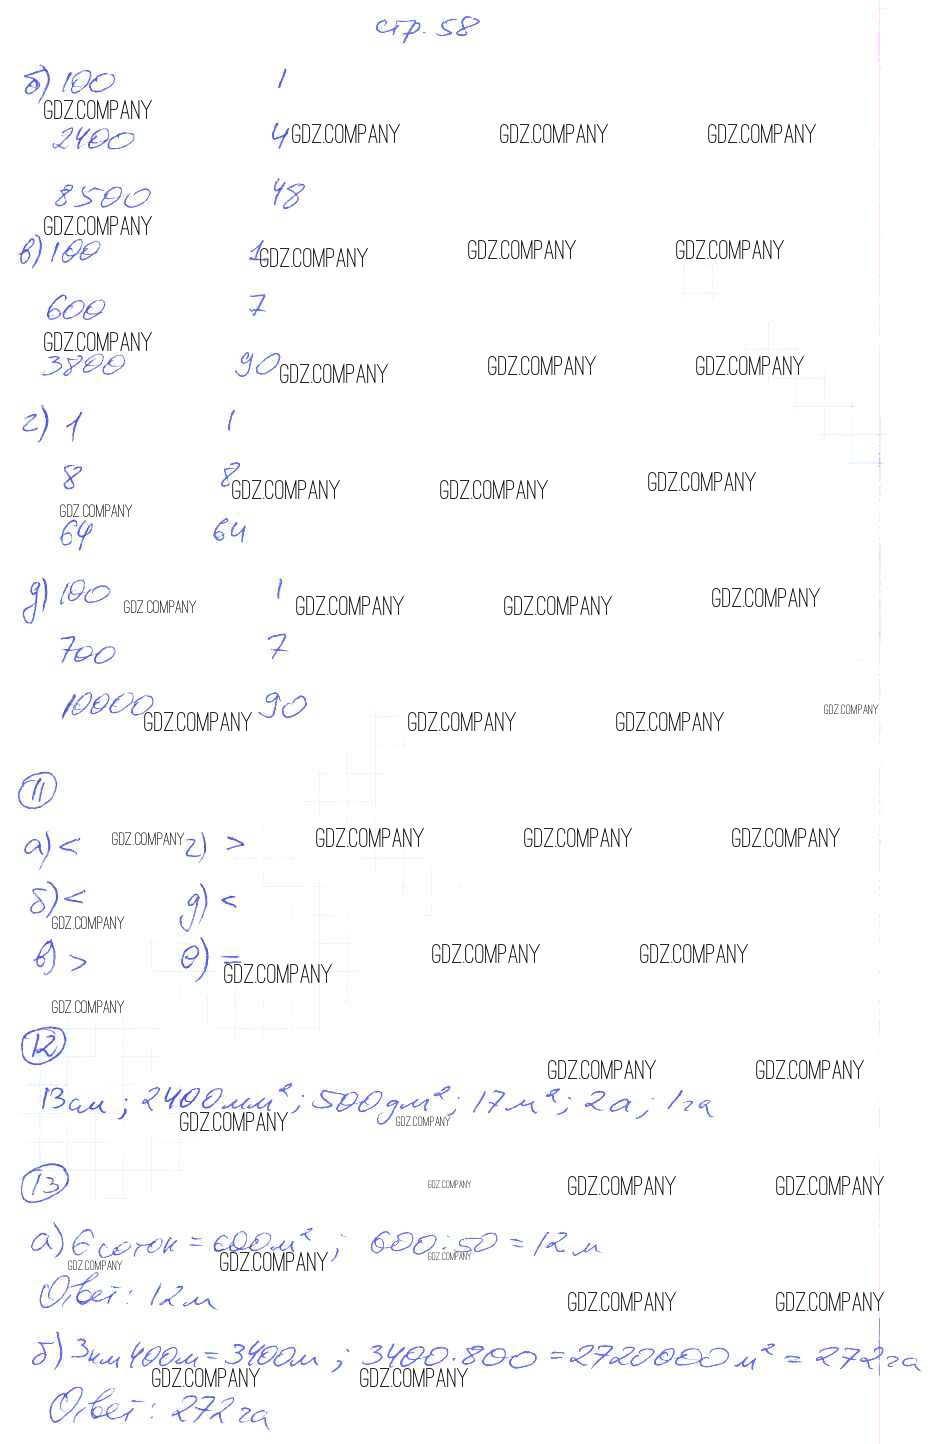 стр. 58
б) 100 1
GDZ.COMPANY
2400 4 GDZ.COMPANY GDZ.COMPANY GDZ.COMPANY
8500 48
GDZ.COMPANY
в) 100 1 GDZ.COMPANY GDZ.COMPANY GDZ.COMPANY
600 7
GDZ.COMPANY
3800 90 GDZ.COMPANY GDZ.COMPANY GDZ.COMPANY
г) 1 1
8 8 GDZ.COMPANY GDZ.COMPANY GDZ.COMPANY
GDZ.COMPANY
64 64
д) 100 GDZ.COMPANY 1 GDZ.COMPANY GDZ.COMPANY GDZ.COMPANY
700 7
10000 GDZ.COMPANY 90 GDZ.COMPANY GDZ.COMPANY GDZ.COMPANY
11
а) < GDZ.COMPANY г) > GDZ.COMPANY GDZ.COMPANY GDZ.COMPANY
б) < д) <
GDZ.COMPANY
в) > е) = GDZ.COMPANY GDZ.COMPANY GDZ.COMPANY
GDZ.COMPANY
12
GDZ.COMPANY GDZ.COMPANY
13 см ; 2400 мм²; 500 дм²; 17 м²; 2 а; 1 га
GDZ.COMPANY GDZ.COMPANY
13
GDZ.COMPANY GDZ.COMPANY GDZ.COMPANY
а) 6 соток = 600 м² ; 600 : 50 = 12 м
GDZ.COMPANY GDZ.COMPANY GDZ.COMPANY
Ответ: 12 м
GDZ.COMPANY GDZ.COMPANY
б) 3 км 400 м = 3400 м ; 3400 · 800 = 2720000 м² = 272 га
GDZ.COMPANY GDZ.COMPANY
Ответ: 272 га